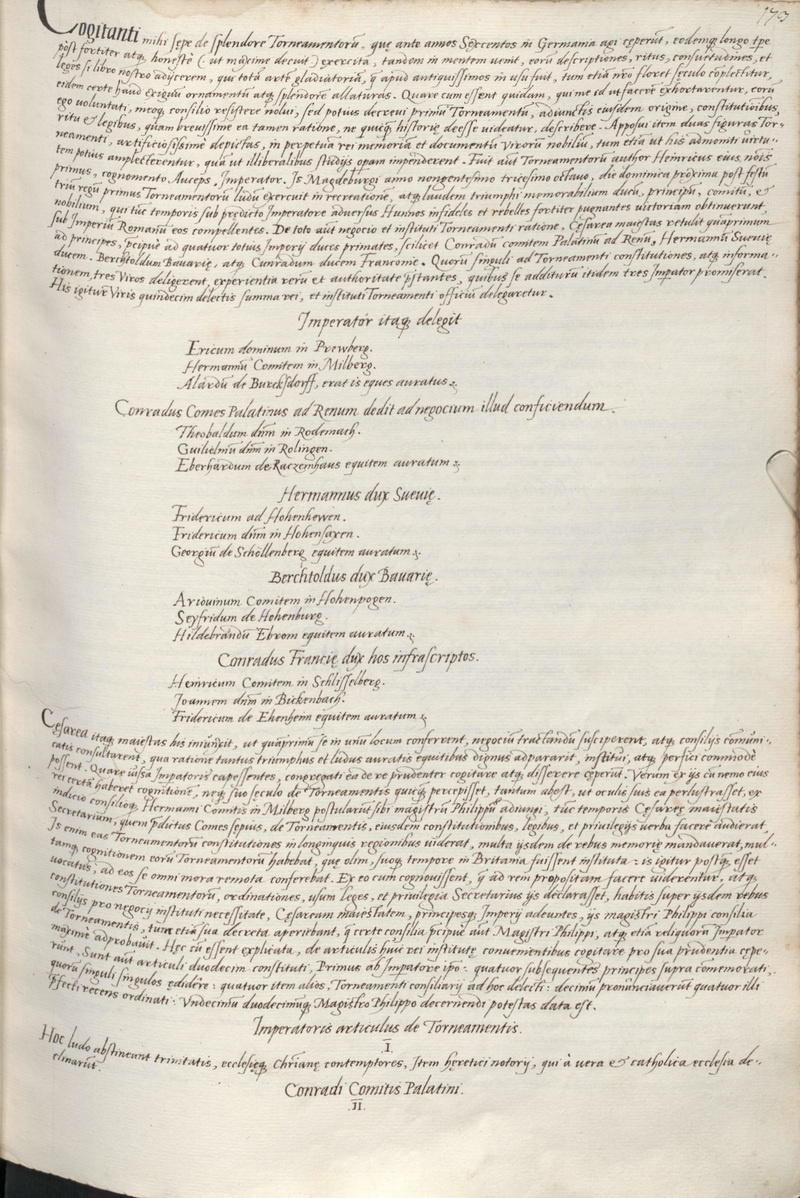 173
Cogitanti mihi sępe de splendore Torneamentorū, quę ante annos Sexcentos in Germania agi cęperūt, eodemq; longo tp̄e
post fortiter atq; honestè (: ut maxime decuit) exercita, tandem in mentem uenit, eorū descriptiones, ritus, consuetudines, et
leges si libro nostro adijcerem, qui totā artē gladiatoriā, q̄ apud antiquissimos in usu fuit, tum etiā nr̄o floret sęculo cōplectitur,
eidem certe haud exiguū ornamentū atq; splendorē allaturas. Quare cum essent quidam, qui me id ut facere exhortarentur, eorū
ego uoluntati, meoq; consilio resistere nolui, sed potius decreui primū Torneamentū, adiunctis eiusdem origine, constitutioībus,
ritu & legibus, quàm breuissime ea tamen ratione, ne quicq; historię deesse uideatur, describere. Apposui item duas figuras Tor-
neamenti, artificiosissimè depictas, in perpetuā rei memoriā et documentū Virorū nobiliū, tum etiā ut his admoniti uirtu-
tem potius amplecterentur, quā ut illiberalibus studijs opam impenderent. Fuit aūt Torneamentorū author Heinricus eius nōīs
primus, cognomento Auceps, Imperator. Is Magdeburgi anno nongentesimo tricesimo octauo, die dominica proxima post festū
triū regū primus Torneamentorū ludū exercuit in recreatione, atq; laudem triumphi memorabilium ducū, principū, comitū, &
nobilium, qui tūc temporis sub prędicto Imperatore aduersus Hunnos infideles et rebelles fortiter pugnantes uictoriam obtinuerunt,
sub Imperiū Romanū eos compellentes. De toto aūt negocio et instituti Torneamenti ratione, Cęsarea maiestas retulit quāprimum
ad principes, p̄cipuè ad quatuor totius Imperij duces primates, scilicet Conradū comitem Palatinū ad Renū, Hermannū Sueuię
ducem. Berchtoldum Bauarię, atq; Cunradum ducem Franconię. Quorū singuli ad Torneamenti constitutiones, atq; informa-
tionem, tres Viros deligerent, experientia rerū et authoritate p̄stantes, quibus se additurū itidem tres Impator promiserat.
His igitur Viris quindecim delectis summa rei, et instituti Torneamenti officiū delegaretur.
Imperator itaq; delegit
Ericum dominum in Prewberg.
Hermannū Comitem in Milberg.
Alardū de Burcksdorff, erat is eques auratus.
Conradus Comes Palatinus ad Renum dedit ad negocium illud conficiendum.
Theobaldum dn̄m in Rodemach.
Guilielmū dn̄m in Rolingen.
Eberhardum de Raczemhaus equitem auratum.
Hermannus dux Sueuię.
Fridericum ad Hohenhewen.
Fridericum dn̄m in Hohensaxen.
Georgiū de Schollenberg equitem auratum.
Berchtoldus dux Bauarię.
Ariouinum Comitem in Hohenpogen.
Seyfridum de Hohenburg.
Hildebrandū Ebrom equitem auratum.
Conradus Francię dux hos infrascriptos.
Heinricum Comitem in Schlisselberg.
Joannem dn̄m in Bickenbach.
Fridericum de Ehenheim equitem auratum.
Cęsarea itaq; maiestas his iniunxit, ut quāprimū se in unū locum conferrent, negociū tractandū susciperent, atq; consilijs comuni-
catis consultarent, qua ratione tantus triumphus et ludus auratis equitibus dignus adpararit, institui, atq; perfici commodè
possent. Quare iussa Impatoris capessentes, congregati ea de re prudenter cogitare atq; disserere cęperūt. Verùm ex ijs cū nemo eius
rei certā haberet cognitionē, neq; suo sęculo de Torneamentis quicq; percepisset, tantum abest, ut oculis suis ea perlustrasset, ex
iudicio consilioq; Hermanni Comitis in Milberg postularūt sibi magistrū Philippū adiungi, tūc temporis Cesareę maiestatis
Secretarium, quem p̄dictus Comes sępius, de Torneamentis, eiusdem constitutionibus, legibus, et priuilegijs uerba facere audierat.
Is enim eas Torneamentorū constitutiones in longinquis regionibus uiderat, multa ijsdem de rebus memorię mandauerat, mul-
tamq; cognitionem eorū Torneamentorū habebat, quę olim, suoq; tempore in Britania fuissent instituta: is igitur postq; esset
uocatus, ad eos se omni mora remota conferebat. Ex eo cum cognouissent, q̄ ad rem propositam facere uiderentur, atq;
constitutiones Torneamentorū, ordinationes, usum leges, et priuilegia Secretarius ijs declarasset, habitis super ijsdem rebus
consilijs pro negocij instituti necessitate, Cęsaream maiestatem, principesq; Imperij adeuntes, ijs magistri Philippi consilia
de Torneamentis, tum etiā sua decreta aperiebant, q̄ certe consilia p̄cipuè aūt Magistri Philippi, atq; etiā reliquorū Impator
maximè adprobauit. Hęc cū essent explicata, de articulis huic rei institutę conuenientibus cogitare pro sua prudentia cępe-
runt. Sunt aūt articuli duodecim constituti. Primus ab Impatore ip̄o: quatuor subsequentes principes supra comemorati,
quorū singuli singulos edidere: quatuor item alios, Torneamenti consiliarij ad hoc delecti: decimū pronunciauerūt quatuor illi
p̄fecti recens ordinati: Vndecimū duodecimūq; Magistro Philippo decernendi potestas data est.
Imperatoris articulus de Torneamentis.
I.
Hoc ludo abstineant trinitatis, ecclesięq; Chr̄ianę contemptores, Item hęretici notorij, qui à uera & catholica ecclesia de-
clinarūt.
Conradi Comitis Palatini.
II.